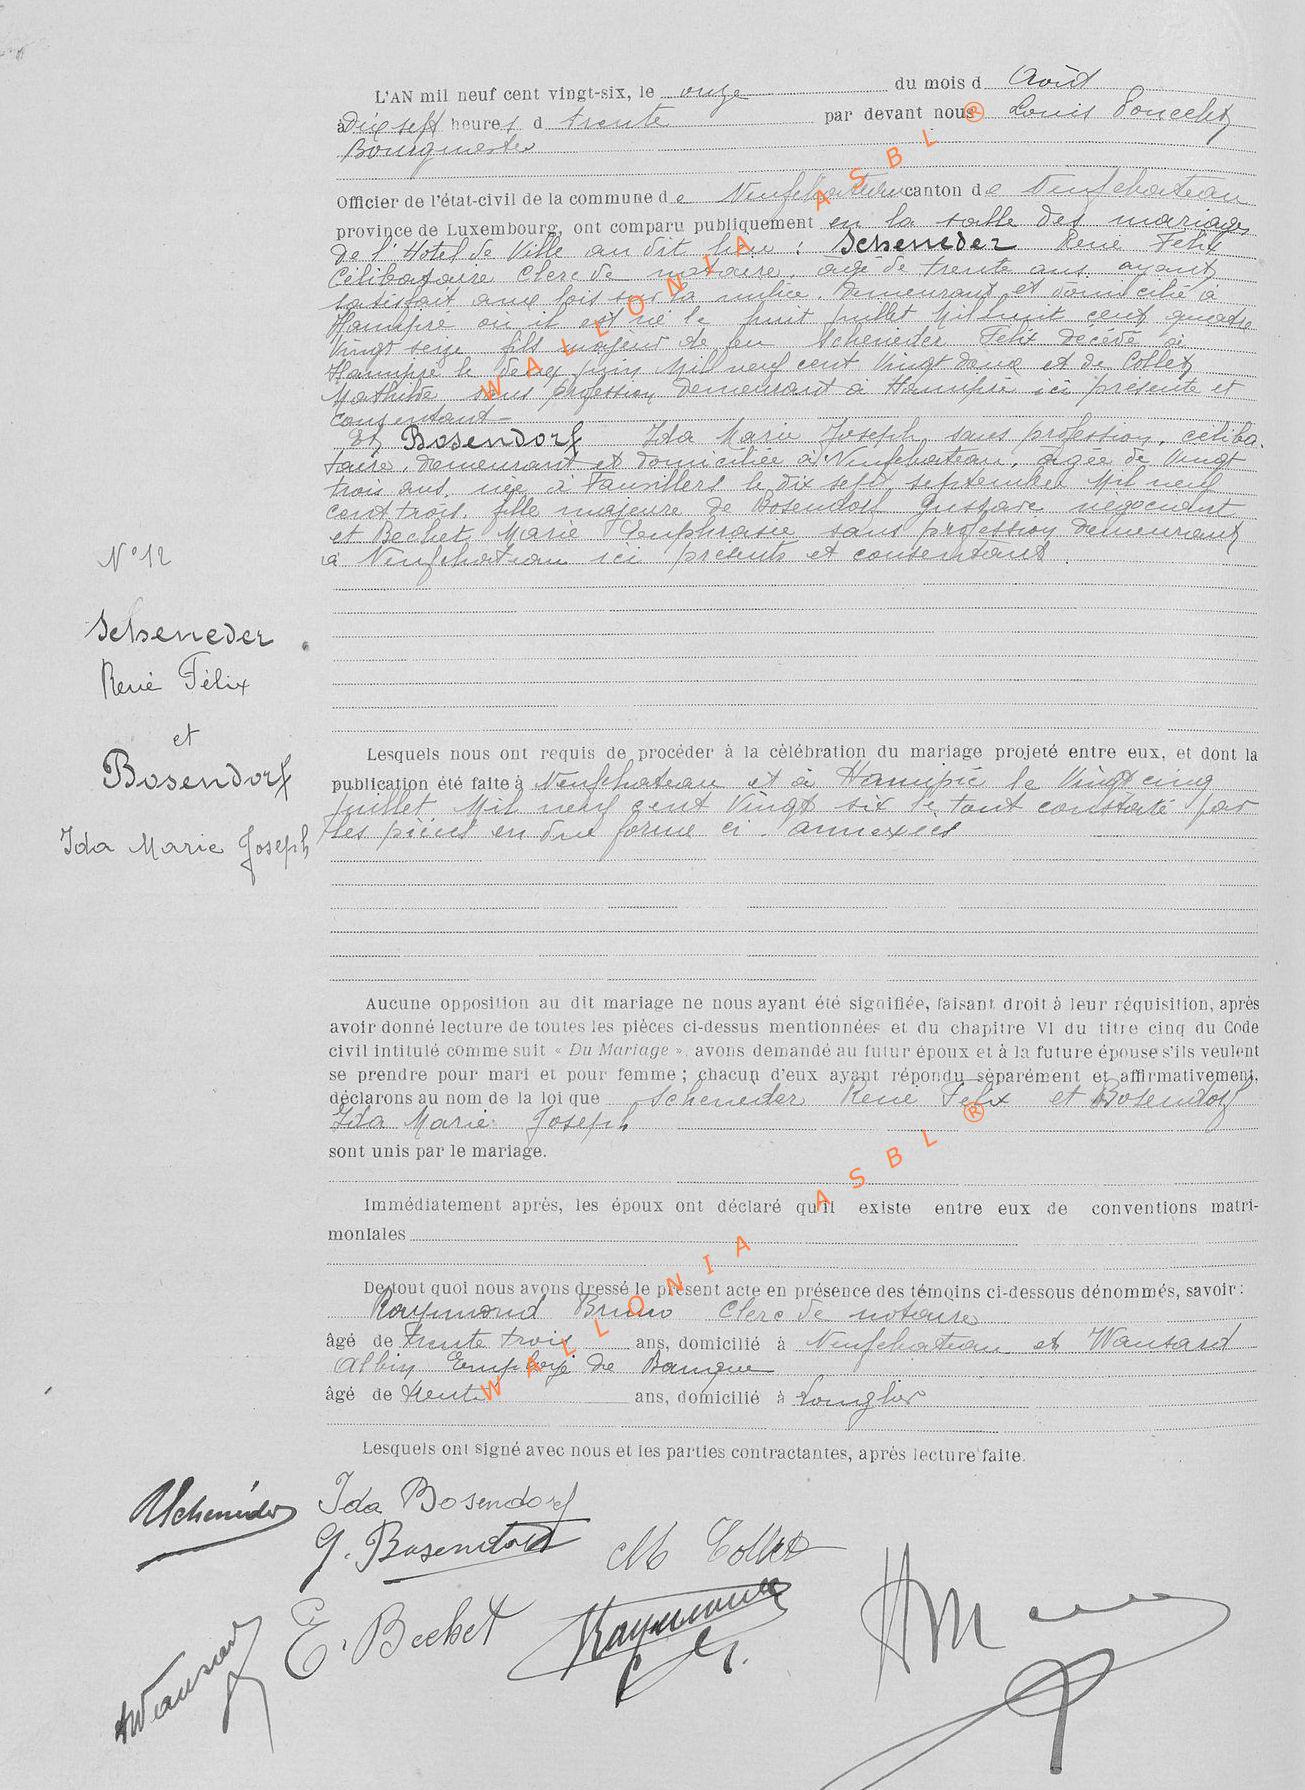 L'AN mil neuf cent vingt-six, le onze du mois d Août
à Dix sept heures d trente par devant nous Louis Poncelet
Bourgmestre
Officier de l'état-civil de la commune de Neufchateau canton de Neufchateau
province de Luxembourg, ont comparu publiquement en la salle des mariages
de l'Hotel de Ville au dit lieu : Scheneder René Felix
Célibataire Clerc de notaire. âgé de trente ans, ayant
satisfait aux lois sur la milice. Demeurant et domicilié à
Hamipré où il est né le huit juillet Mil huit cent quatre
Vingt seize fils majeur de feu Scheneder Félix décédé à
Hamipré le deux juin Mil neuf cent Vingt deux et de Collet
Mathilde sans profession demeurant à Hamipré ici présente et
consentant
Et Bosendorf Ida Marie Joseph sans profession, céliba-
taire, demeurant et domiciliée à Neufchateau, agée de Vingt
trois ans, née à Fauvillers le dix sept septembre Mil neuf
cent trois, fille majeure de Bosendorf Gustave négociant
et Bechet Marie Euphrasie sans profession demeurant
à Neufchateau ici présents et consentants
N° 12
Scheneder
René Félix
et
Bosendorf
Ida Marie Joseph
Lesquels nous ont requis de procéder à la célébration du mariage projeté entre eux, et dont la
publication été faite à Neufchateau et à Hamipré le Vingt cinq
juillet Mil neuf cent Vingt six le tout constaté par
les pièces en due forme ci-annexées
Aucune opposition au dit mariage ne nous ayant été signifiée, faisant droit à leur réquisition, après
avoir donné lecture de toutes les pièces ci-dessus mentionnées et du chapitre VI du titre cinq du Code
civil intitulé comme suit « Du Mariage », avons demandé au futur époux et à la future épouse s'ils veulent
se prendre pour mari et pour femme ; chacun d'eux ayant répondu séparément et affirmativement,
déclarons au nom de la loi que Scheneder René Felix et Bosendorf
Ida Marie Joseph
sont unis par le mariage.
Immédiatement après, les époux ont déclaré qu'il existe entre eux de conventions matri-
moniales
De tout quoi nous avons dressé le présent acte en présence des témoins ci-dessous dénommés, savoir :
Raymond Bruno Clerc de notaire
âgé de trente trois ans, domicilié à Neufchateau et Wansard
Albin Employé de Banque
âgé de trente ans, domicilié à Longlier
Lesquels ont signé avec nous et les parties contractantes, après lecture faite.
RScheneder Ida Bosendorf
G. Bosendorf M Collet
AWansard E. Bechet Raymond
WALLONIA ASBL ®
WALLONIA ASBL ®